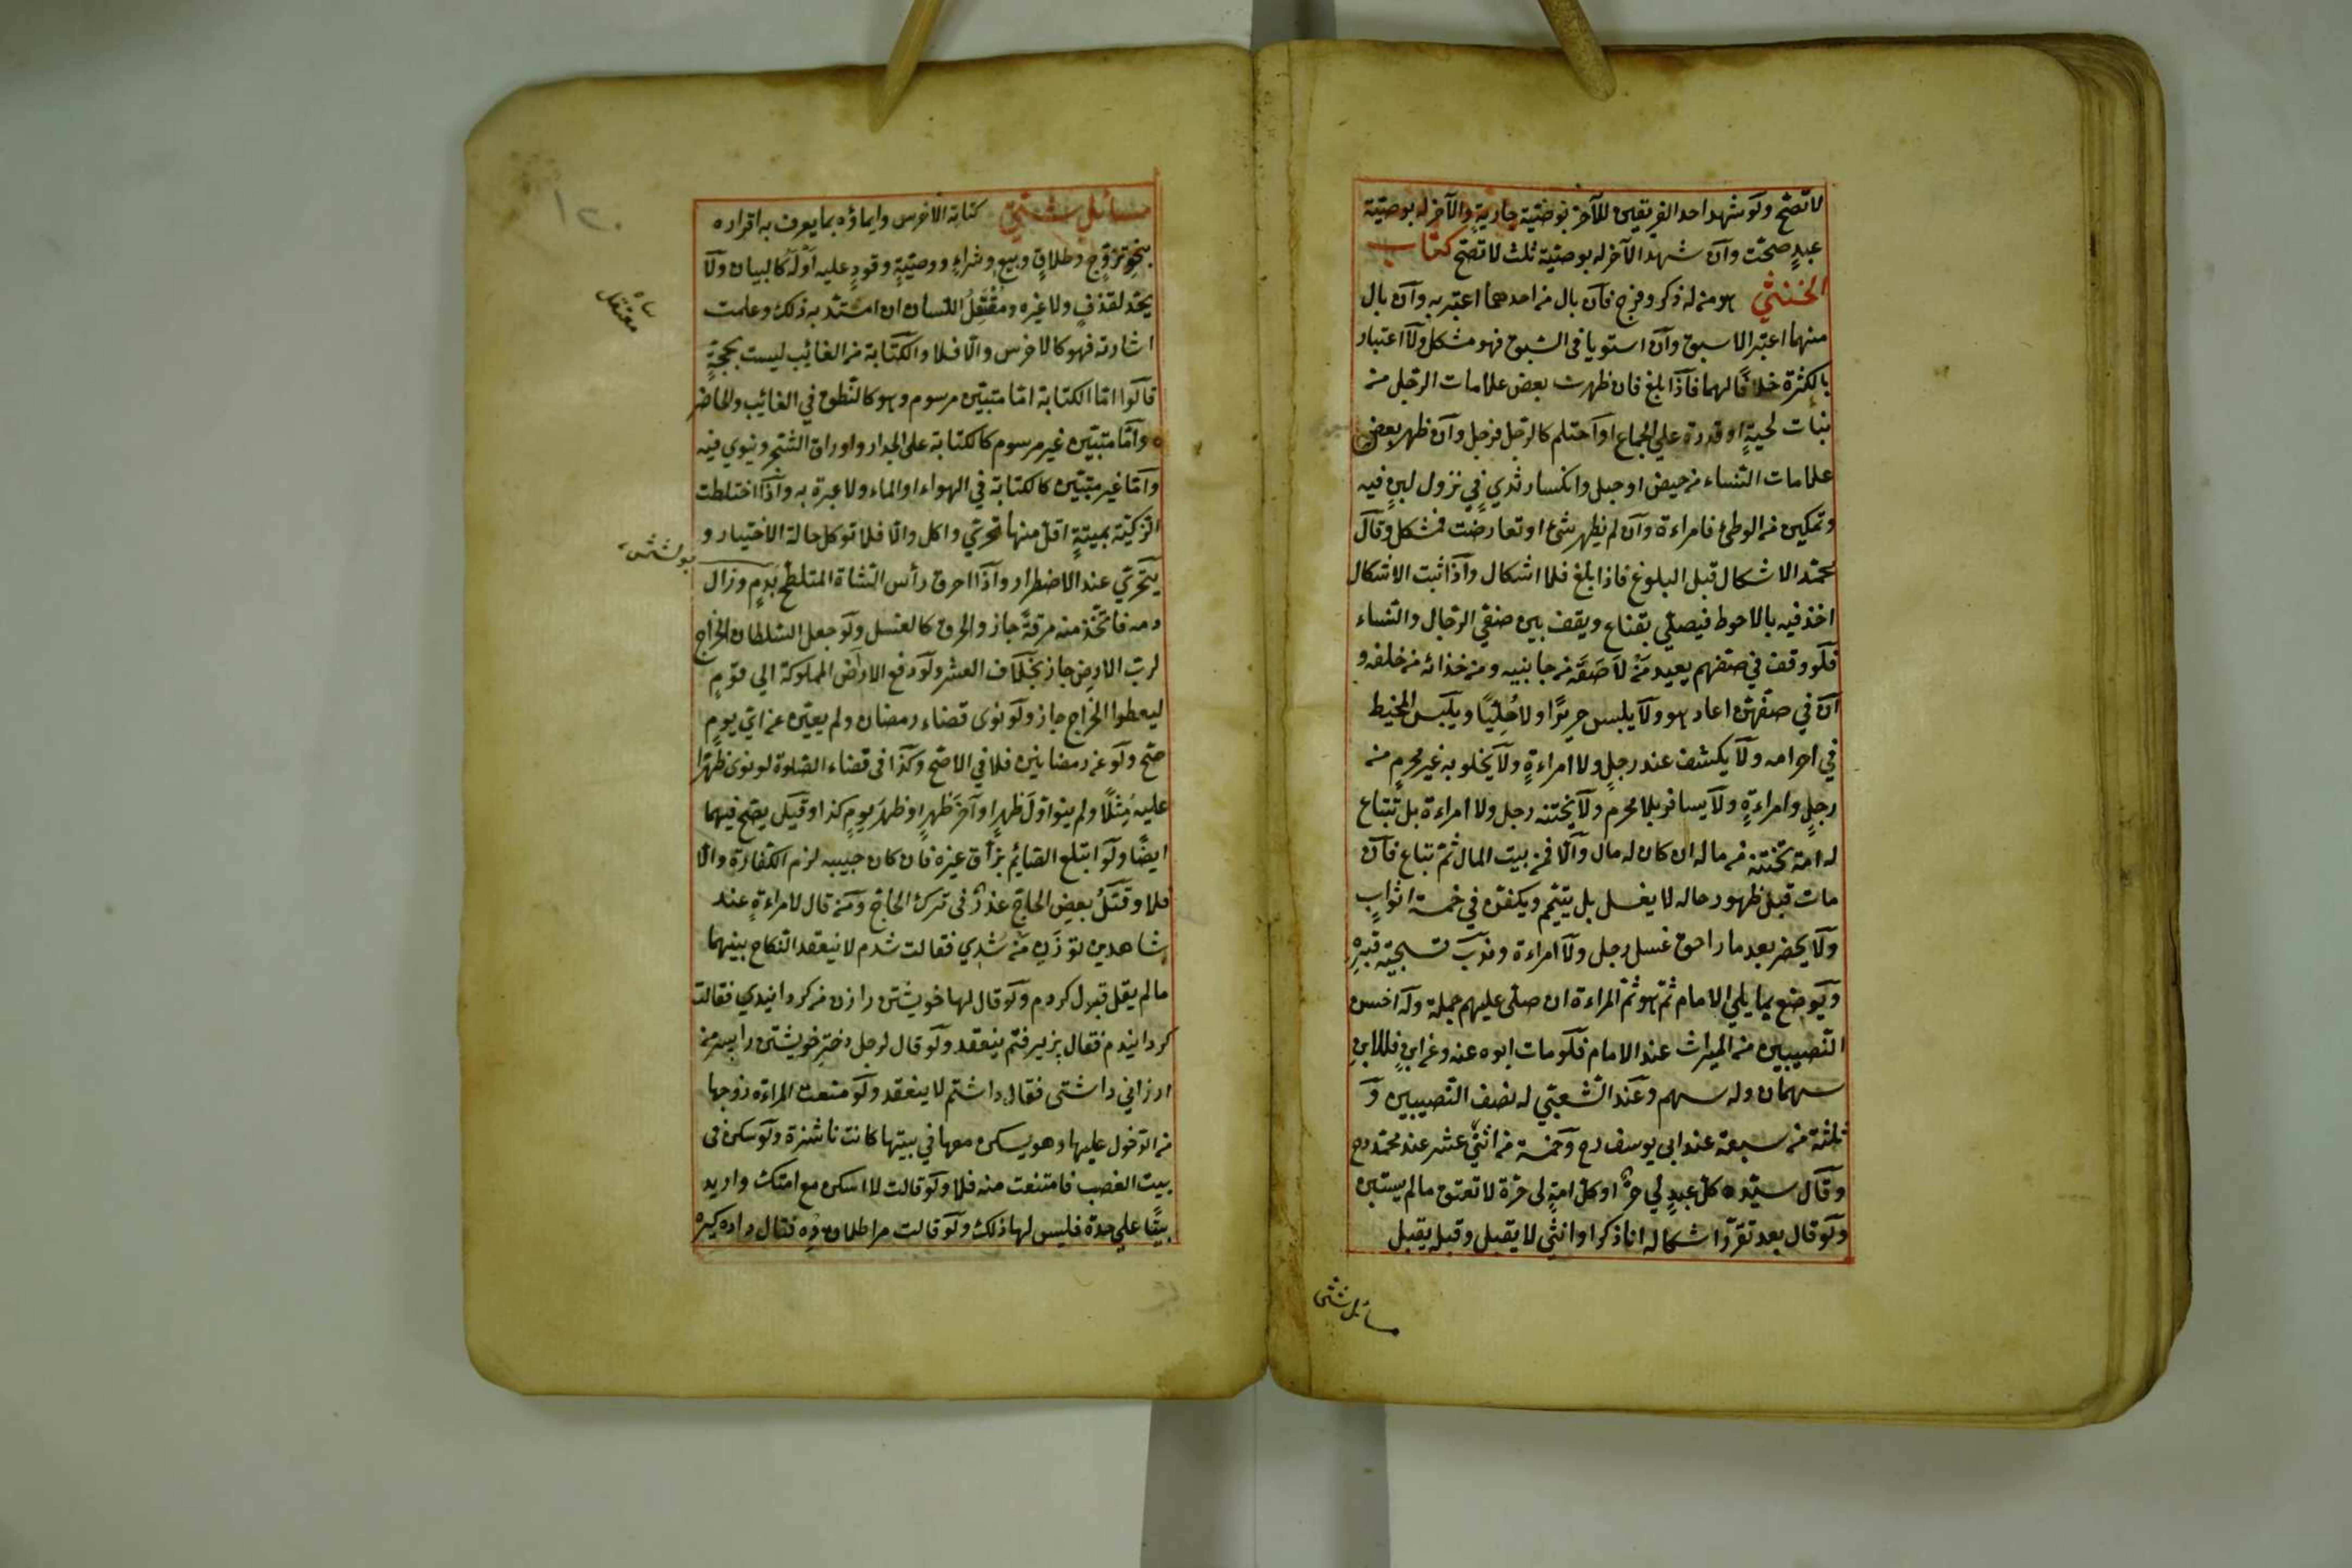 لا تصح ولو شهد احد الفريقين للآخر بوصية جارية والآخر له بوصية
عبد صحت وان شهد الآخر له بوصية ثلث لا تصح كتاب
الخنثي هو من له ذكر وفرج فان بال من احدهما اعتبر به وان بال
منهما اعتبر الاسبق وان استويا في السبق فهو مشكل ولا اعتبار
بالكثرة خلافا لهما فاذا بلغ فان ظهرت بعض علامات الرجل من
نبات لحية او قدرة علي الجماع او احتلم كالرجل فرجل وان ظهر بعض
علامات النساء من حيض او حبل وانكسار ثدي في نزول لبن فيه
وتمكين من الوطئ فامراءة وان لم يظهر شئ او تعارضت فمشكل وقال
محمد الاشكال قبل البلوغ فاذا بلغ فلا اشكال واذا ثبت الاشكال
اخذ فيه بالاحوط فيصلي بقناع ويقف بين صفي الرجال والنساء
فلو وقف في صفهم يعيد من لاصقه من جانبيه ومن خذائه من خلفه و
ان في صفهن اعاد هو ولا يلبس حريرا ولا حليا ويلبس المخيط
في احرامه ولا يكشف عند رجل ولا امراءة ولا يخلو به غير محرم من
رجل وامراءة ولا يسافر بلا محرم ولا يختنه رجل ولا امراءة بل تبتاع
له امة تختنه من ماله ان كان له مال والا فمن بيت المال ثم تباع فان
مات قبل ظهور حاله لا يغسل بل يتيمم ويكفن في خمسة اثواب
ولا يحضر بعد ما راهق غسل رجل ولا امراءة وندب تسجية قبره
ويوضع مما يلي الامام ثم هو ثم المراءة ان صلى عليهم جملة وله اخس
النصيبين من الميراث عند الامام فلو مات ابوه عنه وعن ابن فللابن
سهمان وله سهم وعند الشعبي له نصف النصيبين و
ثلثة من سبعة عند ابي يوسف رح وخمسة من اثني عشر عند محمد رح
وقال سيده كل عبد لي حر او كل امة لي حرة لا تعتق ما لم يستبن
ولو قال بعد تقرر اشكاله انا ذكر او انثي لا يقبل وقبله يقبل
مسائل شتى
مسائل شتي كتابة الاخرس وايماؤه بما يعرف به اقراره
بنحو تزوج وطلاق وبيع وشراء ووصية وقود عليه او له كالبيان ولا
يحد لقذف ولا غيره ومقتقل اللسان ان امتد به ذلك وعلمت
اشارته فهو كالاخرس والا فلا والكتابة من الغائب ليست بحجة
قالوا اما الكتابة اما متبين مرسوم وهو كالنطق في الغائب والحاضر
واما متبين غير مرسوم كالكتابة على الجدار واوراق الشجر وينوي فيه
واما غير متبين كالكتابة في الهواء او الماء ولا عبرة به واذا اختلطت
الزكية بميتة اقل منها تحري واكل والا فلا توكل حالة الاختيار و
يتحري عند الاضطرار واذا احرق رأس الشاة المتلطخ بدم وزال
دمه فاتخذ منه مرقة جاز والحرق كالغسل ولو جعل السلطان الخراج
لرب الارض جاز بخلاف العشر ولو دفع الاراض المملوكة الي قوم
ليعطوا الخراج جاز ولو نوى قضاء رمضان ولم يعين عن اي يوم
صح ولو عن رمضانين فلا في الاصح وكذا في قضاء الصلوة لو نوى ظهرا
عليه مثلا ولم ينو اول ظهر او آخر ظهر او ظهر يوم كذا وقيل يصح فيهما
ايضا ولو ابتلع الصائم بزاق غيره فان كان حبيبه لزم الكفارة والا
فلا وقتل بعض الحاج عذر في ترك الحاج ومن قال لامراءة عند
شاهدين تو زن من شدي فقالت شدم لا ينعقد النكاح بينهما
ما لم يقل قبول كردم ولو قال لها خويشتن را زن من كردانيدي فقالت
كردانيدم فقال بزيرفتم ينعقد ولو قال لرجل دختر خويشتن را بپسر من
ارزاني داشتي فقال داشتم لا ينعقد ولو منعت المراءة زوجها
من الدخول عليها وهو يسكن معها في بيتها كانت ناشزة ولو سكن في
بيت الغصب فامتنعت منه فلا ولو قالت لا اسكن مع امتك واريد
بيتا علي حدة فليس لها ذلك ولو قالت مرا طلاق ده فقال داده كير